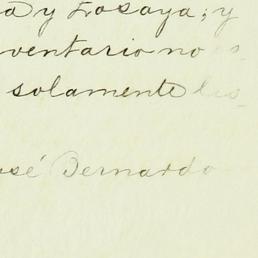 a y Losoya; y
ventario no
solamente
osé Bernardo